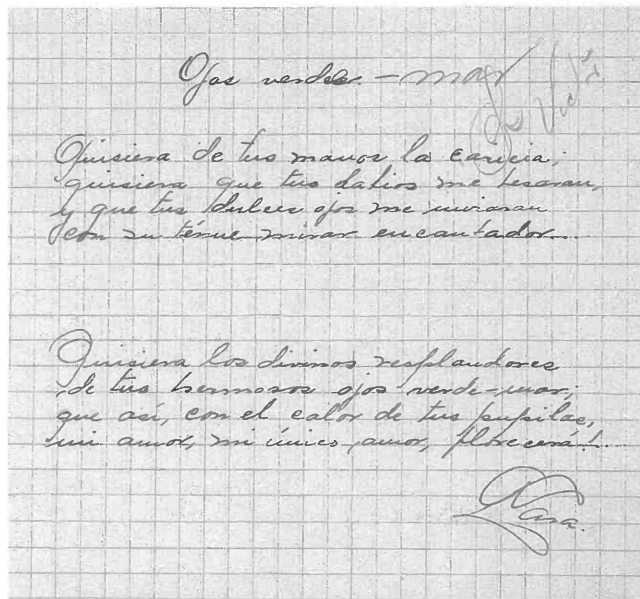 Ojos verdes - mar
de Vidá
Quisiera de tus manos la caricia;
quisiera que tus labios me besaran,
y que tus dulces ojos me miraran
con su ténue mirar encantador...
Quisiera los divinos resplandores
de tus hermosos ojos verde-mar;
que así, con el calor de tus pupilas,
mi amor, mi único amor, florecerá!